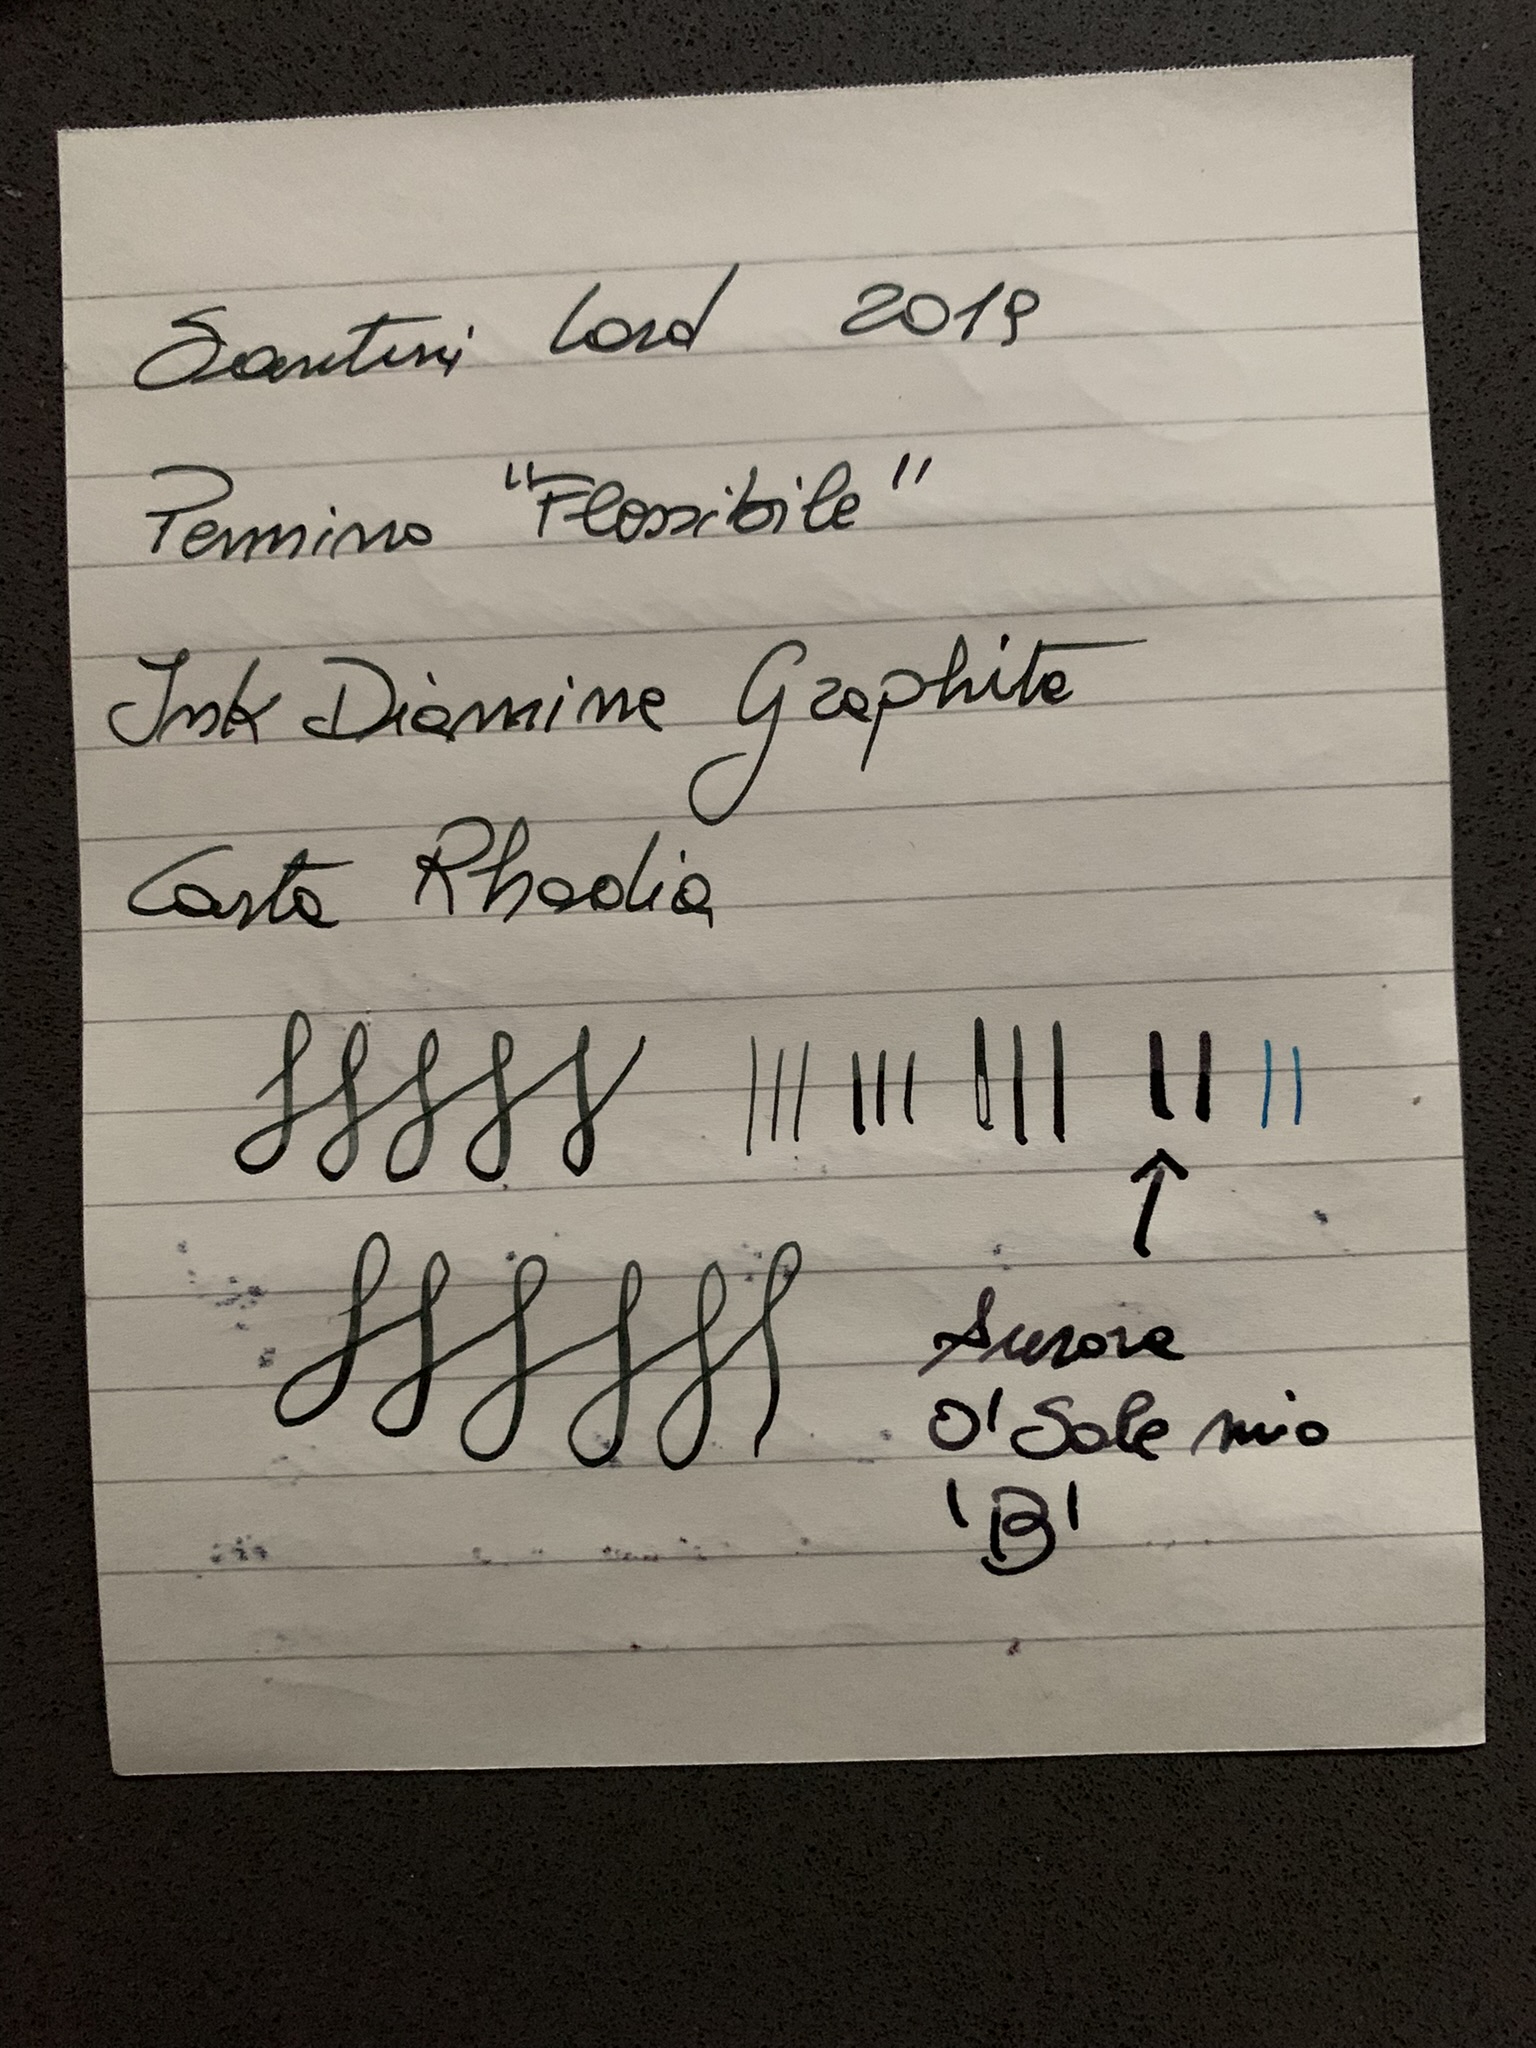 Santini Lord 2019
Pennino "Flessibile"
Ink Diamine Graphite
Carta Rhodia
Aurora
O' Sole mio
'B'